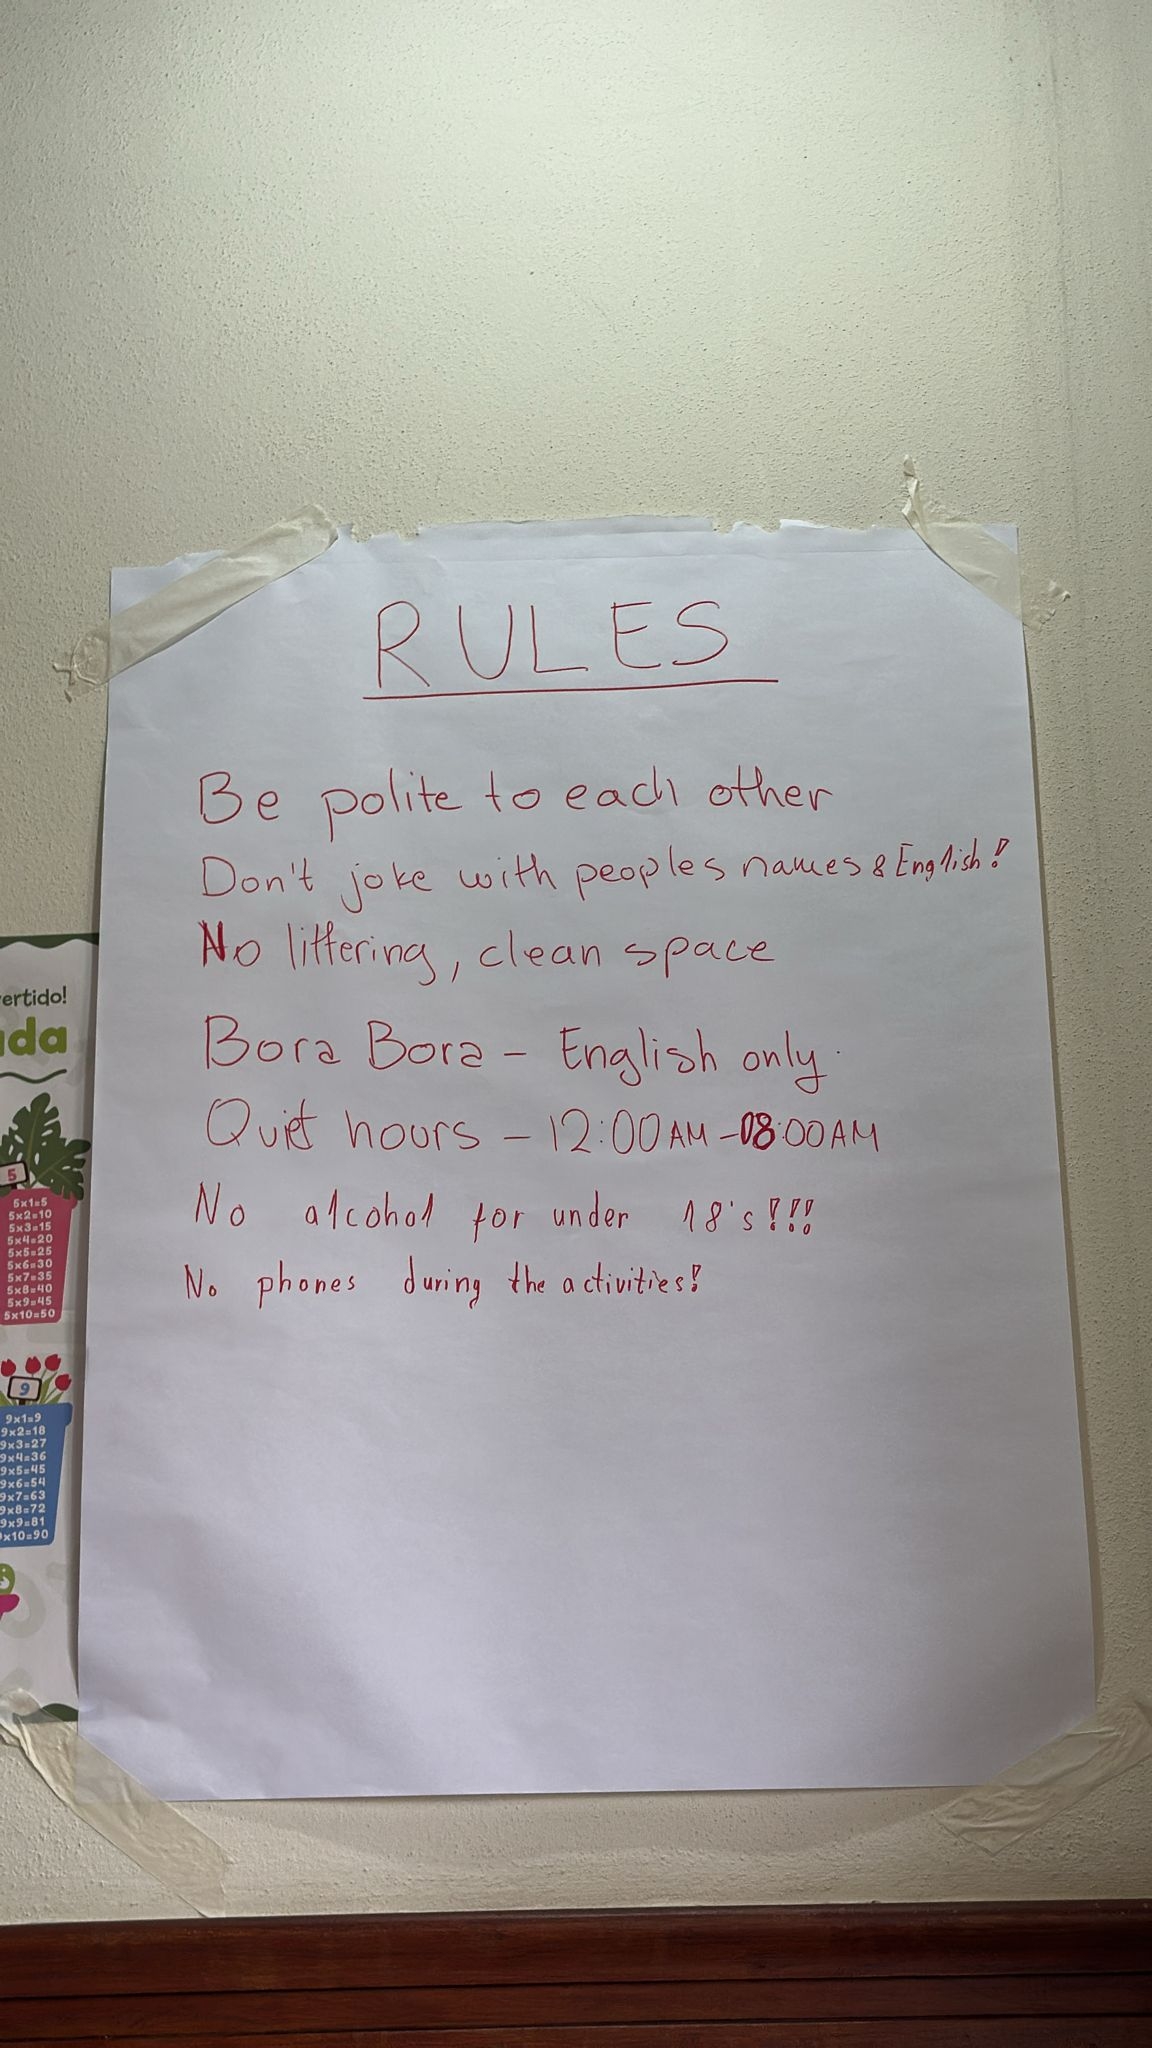 RULES
Be polite to each other
Don't joke with peoples names & English!
No littering, clean space
Bora Bora - English only.
Quiet hours - 12:00AM-08:00AM
No alcohol for under 18's!!!
No phones during the activities!
ertido!
da
5
5x1=5
5x2=10
5x3=15
5x4=20
5x5=25
5x6=30
5x7=35
5x8=40
5x9=45
5x10=50
9
9x1=9
9x2=18
9x3=27
9x4=36
9x5=45
9x6=54
9x7=63
9x8=72
9x9=81
x10=90